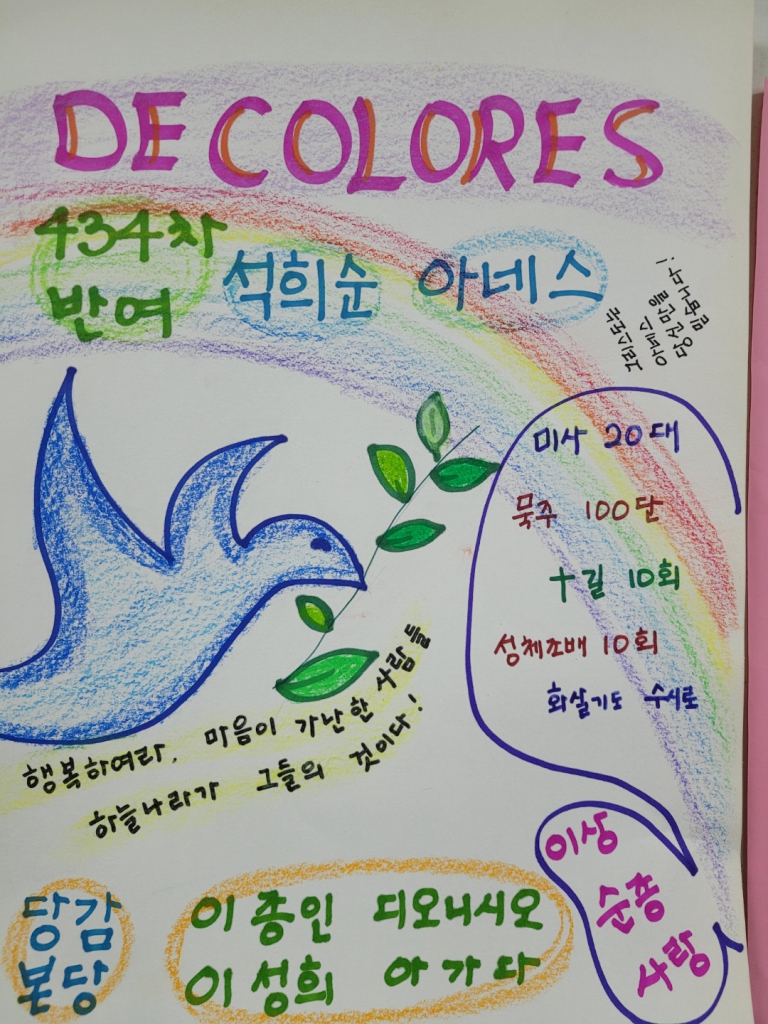 DE COLORES
434차
반여
석희순 아네스
미사 20대
묵주 100단
十길 10회
성체조배 10회
화살기도 수시로
행복하여라, 마음이 가난한 사람들
하늘나라가 그들의 것이다!
이상
순종
사랑
당감
본당
이종인 디오니시오
이성희 아가다